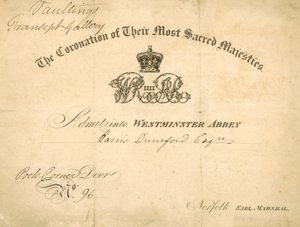 Vaultings
Transept Gallery
The Coronation of Their Most Sacred Majesties.
WR IIII & AR
Admit into WESTMINSTER ABBEY
Harris Dunsford Esqre
Poets Corner Door
No. 96
Norfolk EARL MARSHAL.